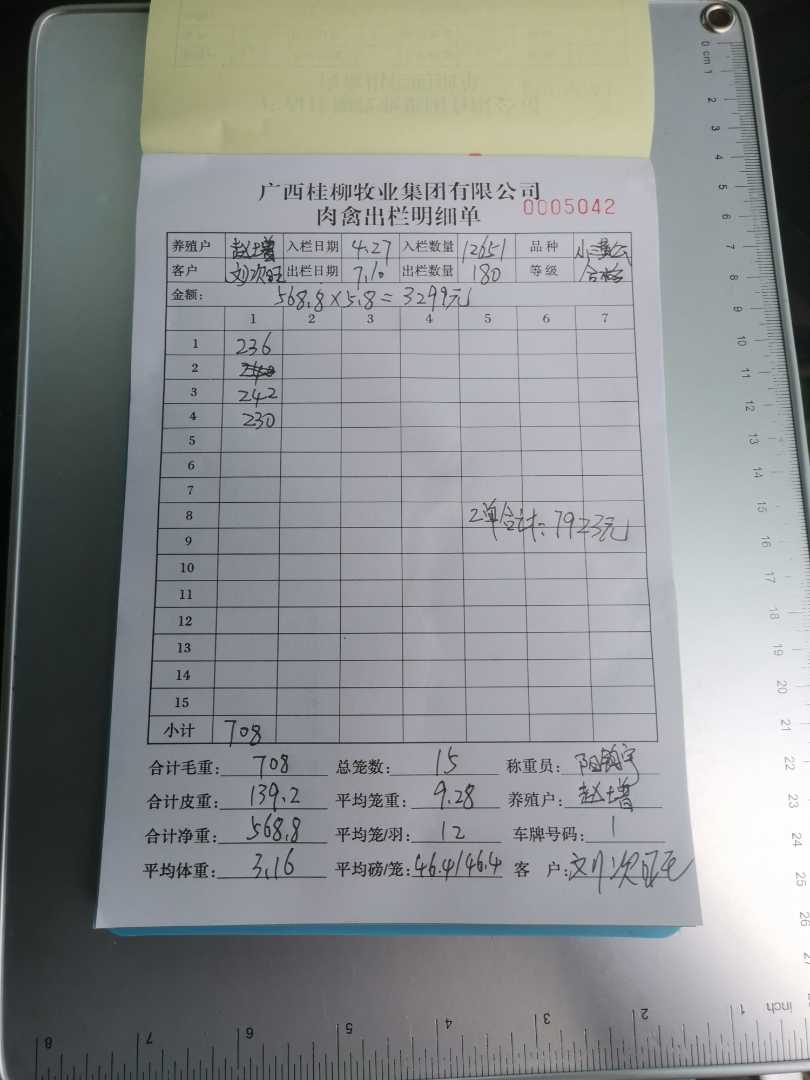 广西桂柳牧业集团有限公司
肉禽出栏明细单 0005042
养殖户 赵士增 入栏日期 4.27 入栏数量 12651 品种 小三黄公
客户 刘次旺 出栏日期 7.10 出栏数量 180 等级 合格
金额: 568.8×5.8=3299元
1 2 3 4 5 6 7
1 236
2
3 242
4 230
5
6
7
8 2单合计:7923元
9
10
11
12
13
14
15
小计 708
合计毛重: 708 总笼数: 15 称重员:
合计皮重: 139.2 平均笼重: 9.28 养殖户: 赵士增
合计净重: 568.8 平均笼/羽: 12 车牌号码: 1
平均体重: 3.16 平均磅/笼: 46.4/46.4 客户: 刘次旺
0 cm 1 2 3 4 5 6 7 8 9 10 11 12 13 14 15 16 17 18 19 20 21 22 23 24 25 26
8 7 6 5 4 3 2 1 inch